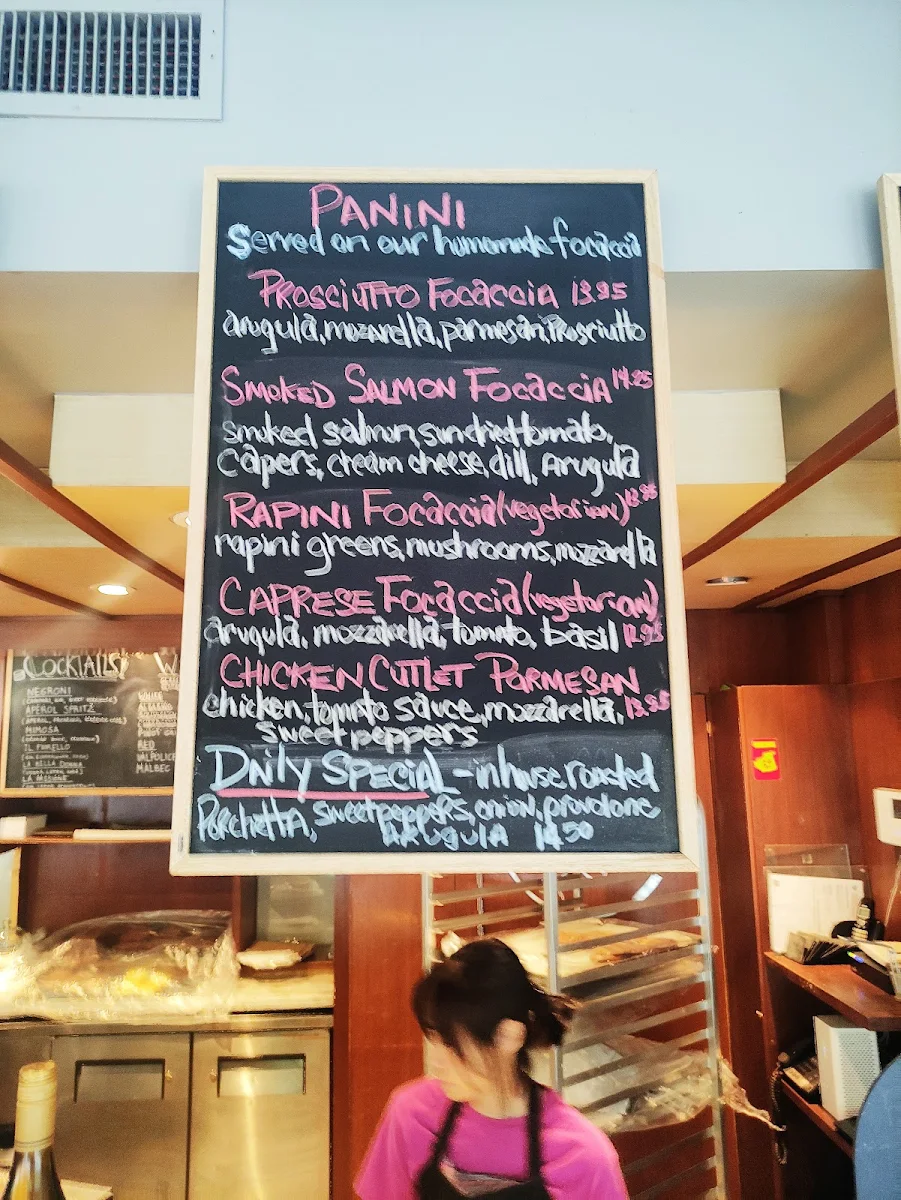 PANINI
Served on our homemade focaccia
PROSCIUTTO FOCACCIA 13.95
arugula, mozarella, parmesan, Prosciutto
SMOKED SALMON FOCACCIA 14.25
smoked salmon, sundried tomato,
capers, cream cheese, dill, Arugula
RAPINI FOCACCIA (vegetarian) 12.95
rapini greens, mushrooms, mozzarella
CAPRESE FOCACCIA (vegetarian)
arugula, mozzarella, tomato, basil 12.95
CHICKEN CUTLET PARMESAN
chicken, tomato sauce, mozzarella, 13.95
sweet peppers
DAILY SPECIAL - inhouse roasted
Porchetta, sweet peppers, onion, provolone
ARUGULA 14.50
COCKTAILS
NEGRONI
APEROL SPRITZ
MIMOSA
IL FIORELLO
LA BELLA DONNA
RED
MALBEC